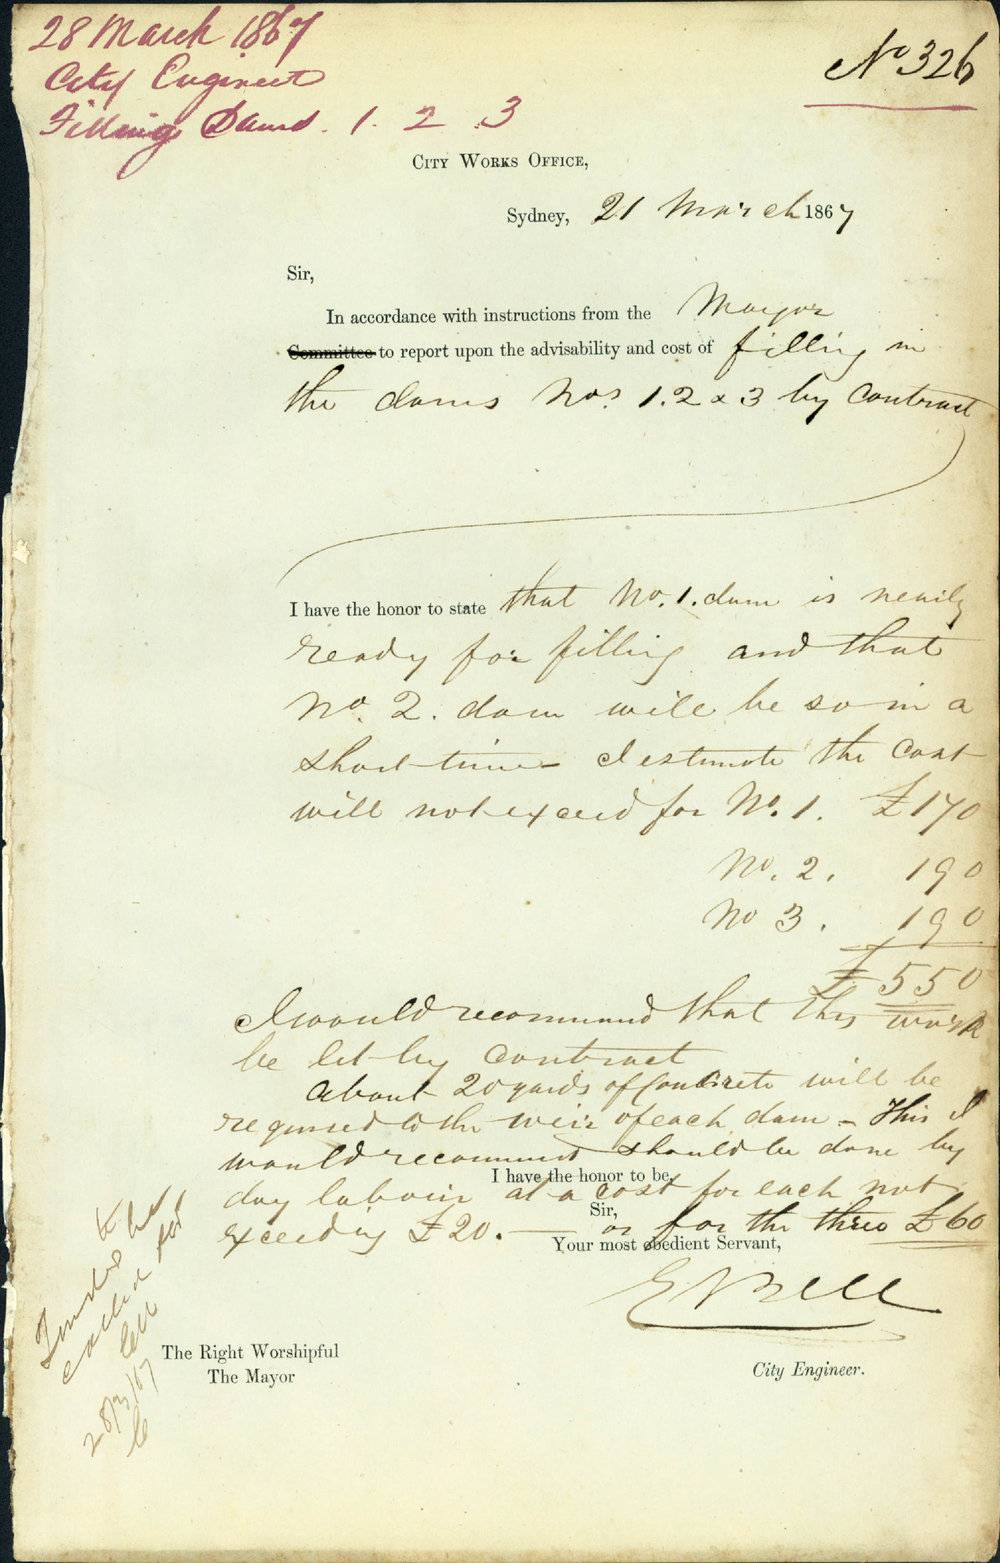 28 March 1867
City Engineer
Filling Dams. 1. 2. 3
No 326
City Works Office,
Sydney, 21 March 1867
Sir,
In accordance with instructions from the Mayor
Committee to report upon the advisability and cost of filling in
the dams Nos. 1. 2 & 3 by contract
I have the honor to state that No. 1. dam is nearly
ready for filling and that
No. 2. dam will be so in a
short time - I estimate the cost
will not exceed for No. 1. £170
No. 2. 190
No 3. 190
£ 550
I would recommend that this work
be let by contract
About 20 yards of Concrete will be
required to the weir of each dam - This I
would recommend should be done by
day labour at a cost for each not
exceeding £20. — or for the three £60
I have the honor to be,
Sir,
Your most obedient Servant,
E Bell
City Engineer.
The Right Worshipful
The Mayor
Tenders to be
called for
28/3/67